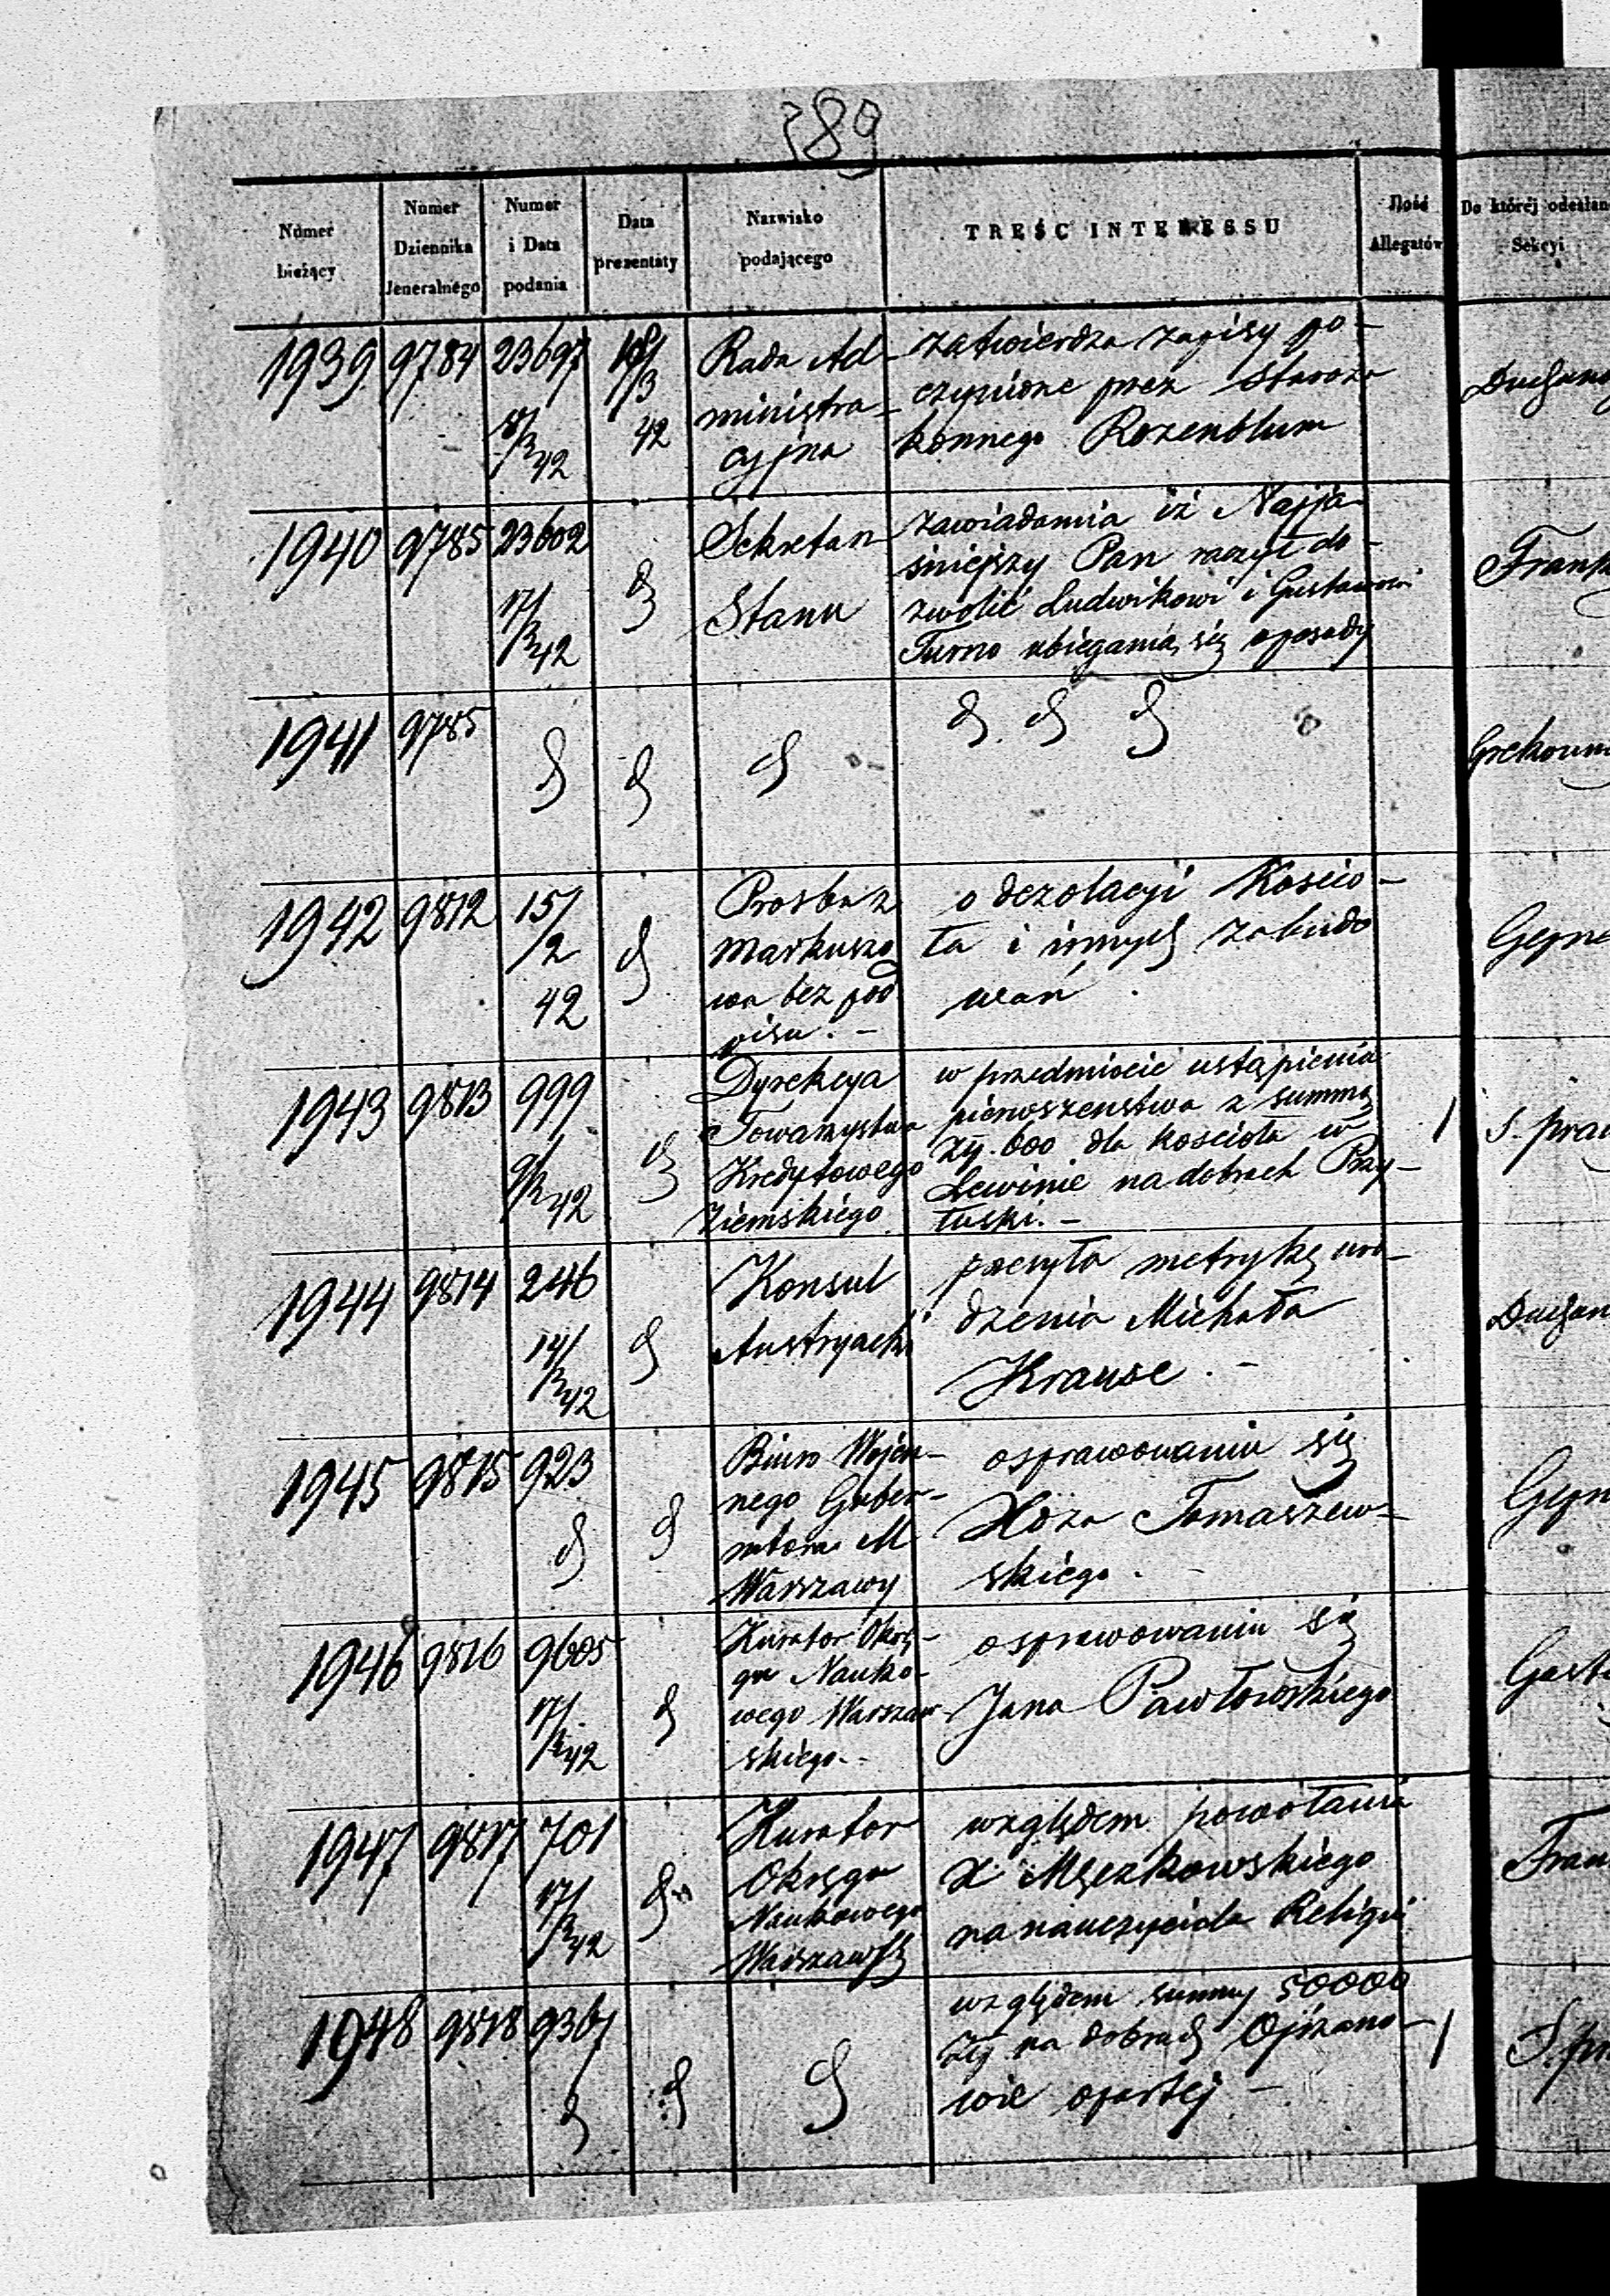 389
Numer bieżący
Numer Dziennika Jeneralnego
Numer i Data podania
Data prezentaty
Nazwisko podającego
TREŚĆ INTERESSU
Ilość Allegatów
Do któréj odesłan
Sekcyi
1939 9784 23697 18/3 42 Rada Ad-
ministra-
cyjna
zatwierdza zapisy po-
czynione przez Staroza
konnego Rozenblum
1940 9785 23602 17/3 42 Sekretarz
Stanu
zawiadamia iż Najja
śniejszy Pan raczył do-
zwolić Ludwikowi i Gustawowi
Turno ubiegania się o posady
1941 9785
1942 9812 15/2 42 Prosba z
Markuszo
wa bez pod
pisu. -
o dezolacyi Koscio-
ła i innych zabudo
wań
1943 9813 999 42 Dyrekcya
Towarzystwa
Kredytowego
Ziemskiego
w przedmiocie ustąpienia
pierwszenstwa z summą
Zlp. 600 dla kosciola w
Lewinie na dobrach Przy-
łuski. -
1 S. praw
1944 9814 246 14/3 42 Konsul
Austryacki
przesyła metrykę uro-
dzenia Michała
Krause. -
1945 9815 923 Biuro Wojen-
nego Guber-
natora M
Warszawy
o sprawowaniu się
Xdza Tomaszew-
skiego. -
1946 9816 9605 17/3 42 Kurator Okrę-
gu Nauko-
wego Warszaw-
skiego. -
o sprawowaniu się
Jana Pawłowskiego
1947 9817 701 17/3 42 Kurator
Okręgu
Naukowego
Warszawsk
względem powołania
X Męczkowskiego
na nauczyciela Religii
1948 9818 9361
względem summy 50000
Zlp na dobrach Ojrzano-
wie opartej -
1